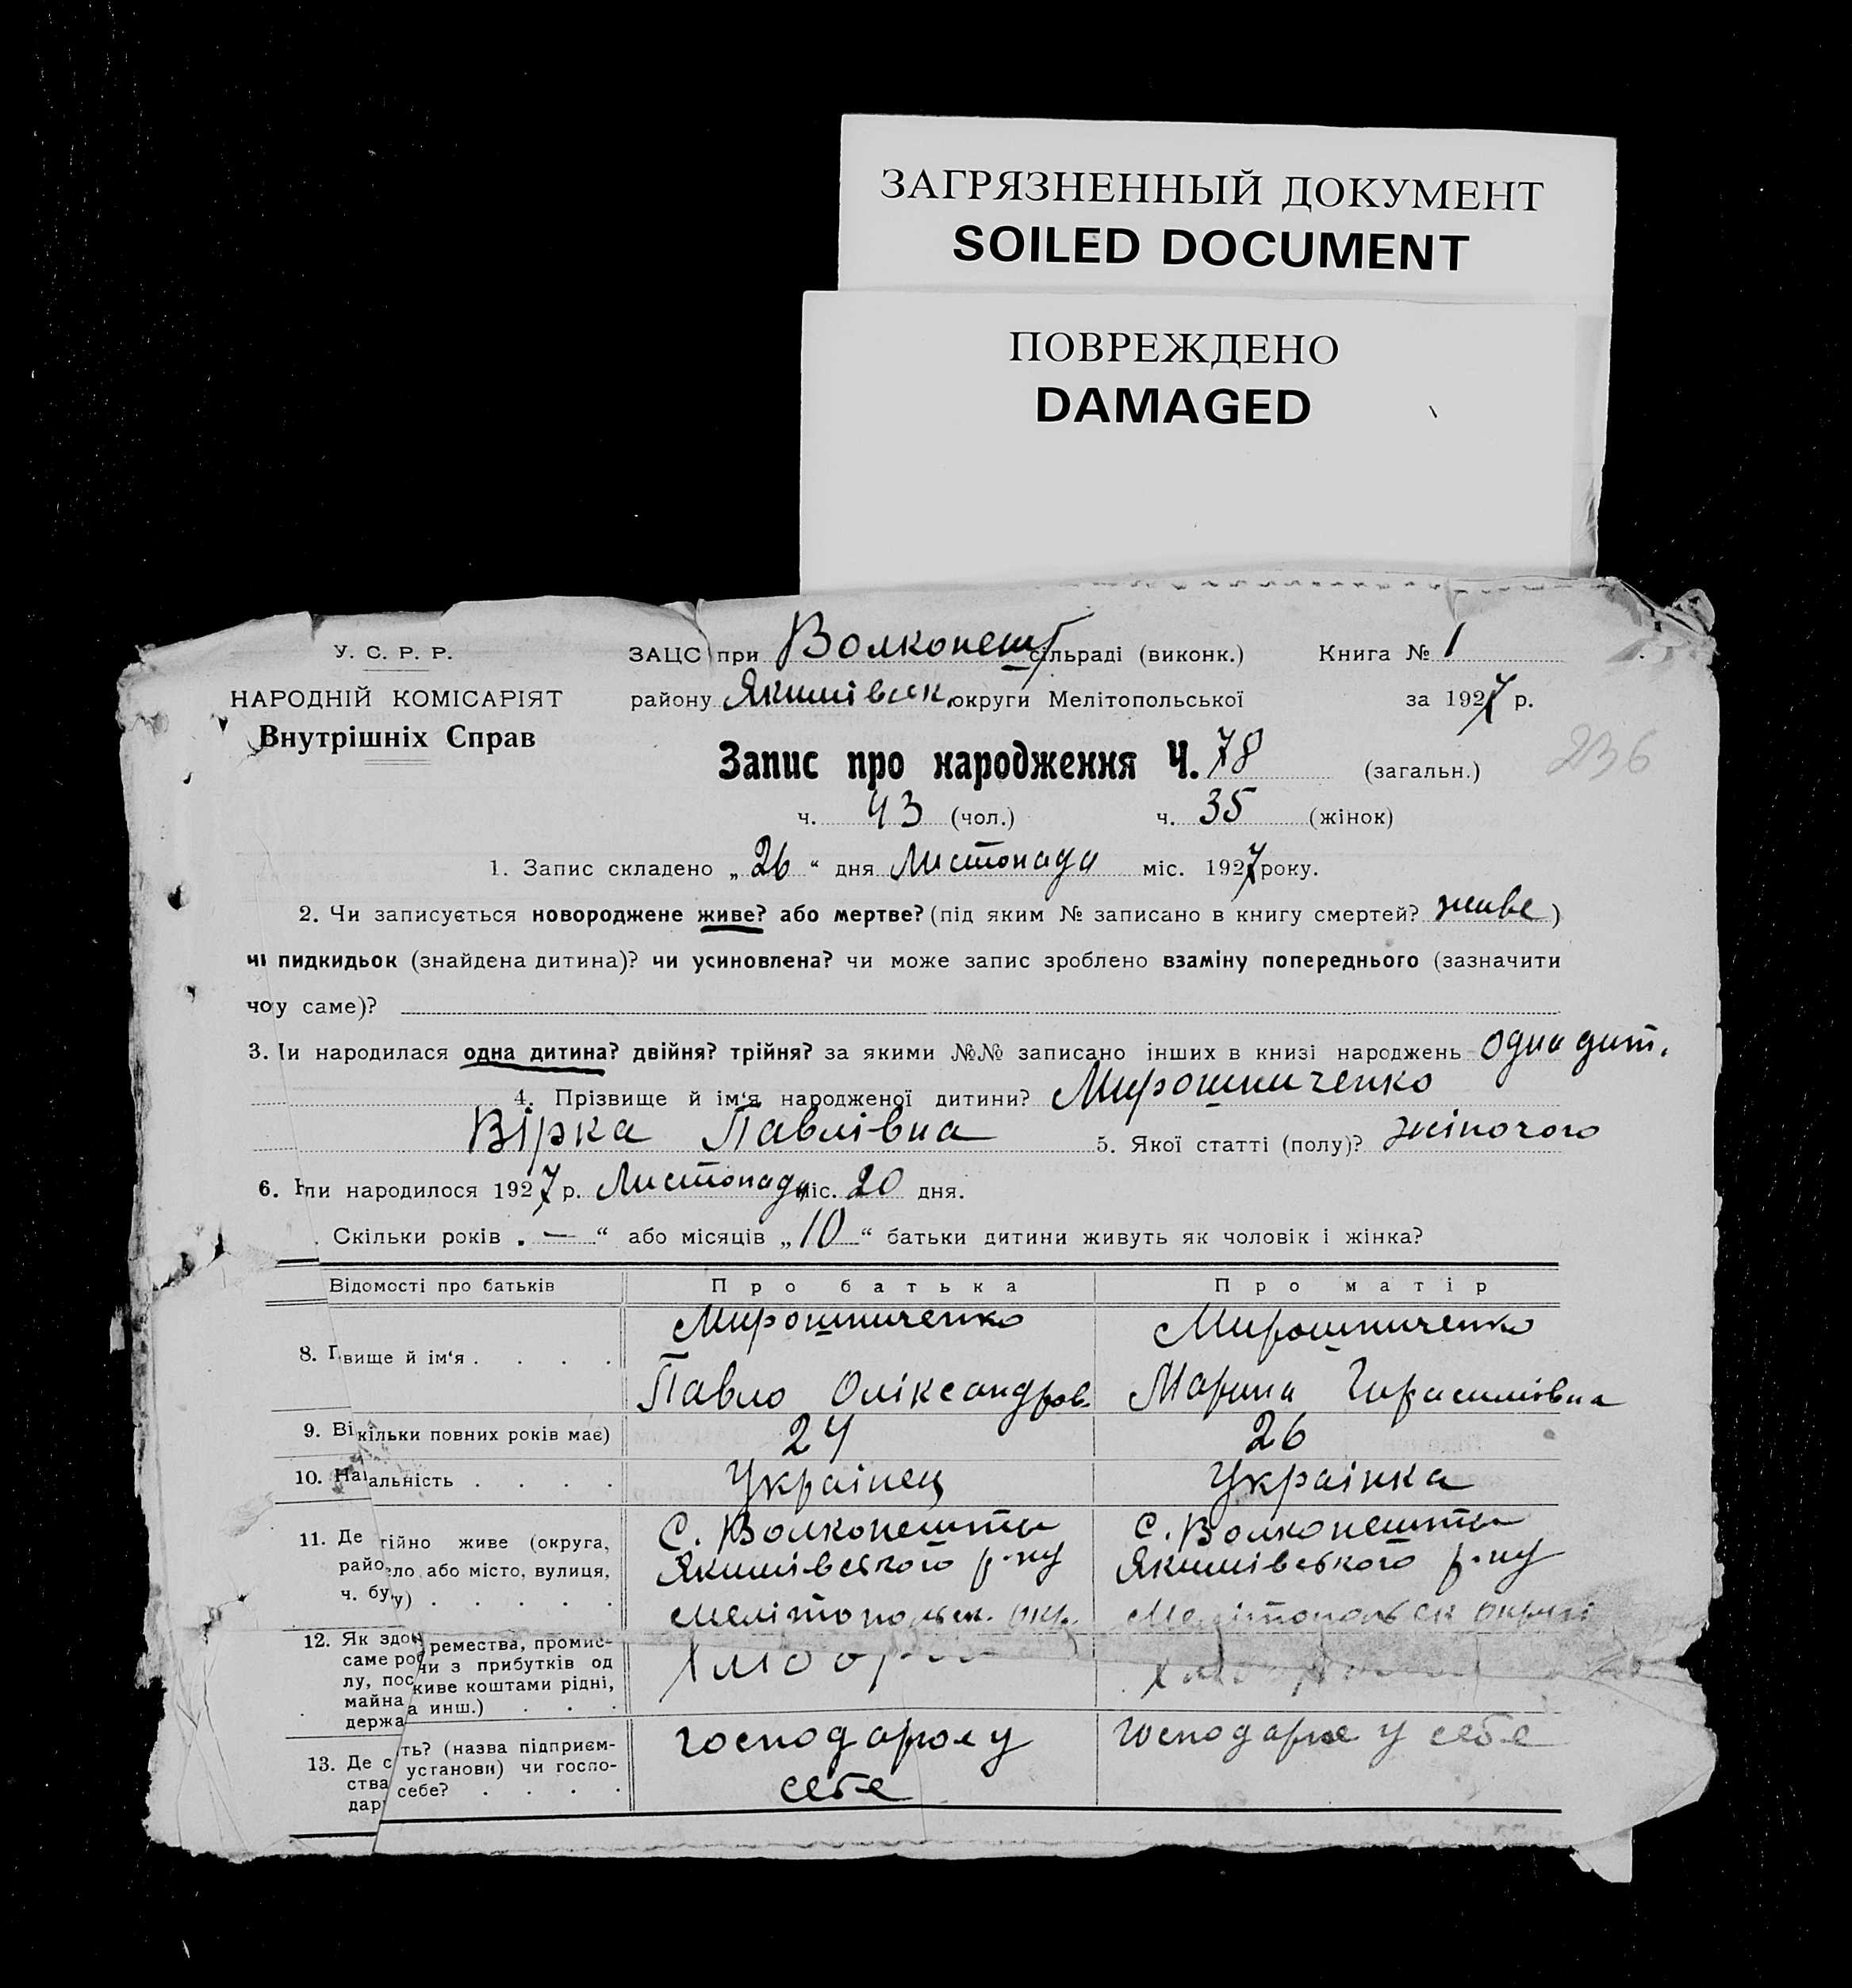 ЗАГРЯЗНЕННЫЙ ДОКУМЕНТ
SOILED DOCUMENT
ПОВРЕЖДЕНО
DAMAGED
У. С. Р. Р.
НАРОДНІЙ КОМІСАРІЯТ
Внутрішніх Справ
ЗАЦС при Волконешт сільраді (виконк.) Книга № 1
району Якимівськ округи Мелітопольської за 1927 р.
Запис про народження Ч. 78 (загальн.) 236
ч. 43 (чол.) ч. 35 (жінок)
1. Запис складено „ 26 “ дня Листопада міс. 1927 року.
2. Чи записується новороджене живе? або мертве? (під яким № записано в книгу смертей? живе )
чі пидкидьок (знайдена дитина)? чи усиновлена? чи може запис зроблено взаміну попереднього (зазначити
чоу саме)?
3. и народилася одна дитина? двійня? трійня? за якими №№ записано інших в книзі народжень одна дит.
4. Прізвище й ім‘я народженої дитини? Мирошниченко
Вірка Павлівна 5. Якої статті (полу)? жіночого
6. ли народилося 1927 р. Листопада міс. 20 дня.
Скільки років „ — “ або місяців „ 10 “ батьки дитини живуть як чоловік і жінка?
Відомості про батьків Про батька Про матір
8. П вище й ім‘я . . . . Мирошниченко Мирошниченко
Павло Оліксандров. Марина Гирасимівна
9. Ві кільки повних років має) 24 26
10. На альність . . . . Українец Українка
11. Де тійно живе (округа, С. Волконешты С. Волконешты
райо ло або місто, вулиця, Якимівського р-ну Якимівського р-ну
ч. бу у) . . . . . Мелітопольск. окр. Мелітопольск округі
12. Як здо ремества, промис-
саме ро чи з прибутків од
лу, пос живе коштами рідні,
майна а инш.) . . .
держа
13. Де с ть? (назва підприєм- господарює у господарює у себе
ства установи) чи госпо- себе
дар себе? . . . .